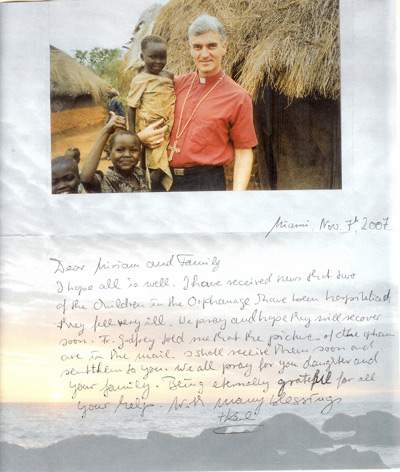 Miami, Nov. 7th, 2007
Dear Miriam and Family
I hope all is well. I have received news that two
of the Children in the Orphanage have been hospitalized
they fell very ill. We pray and hope they will recover
soon. Fr. Godfrey told me that the picture of the orphan
are in the mail. I shall receive them soon and
sent them to you. We all pray for you daughter and
your family. Being eternally grateful for all
your help. With many blessings